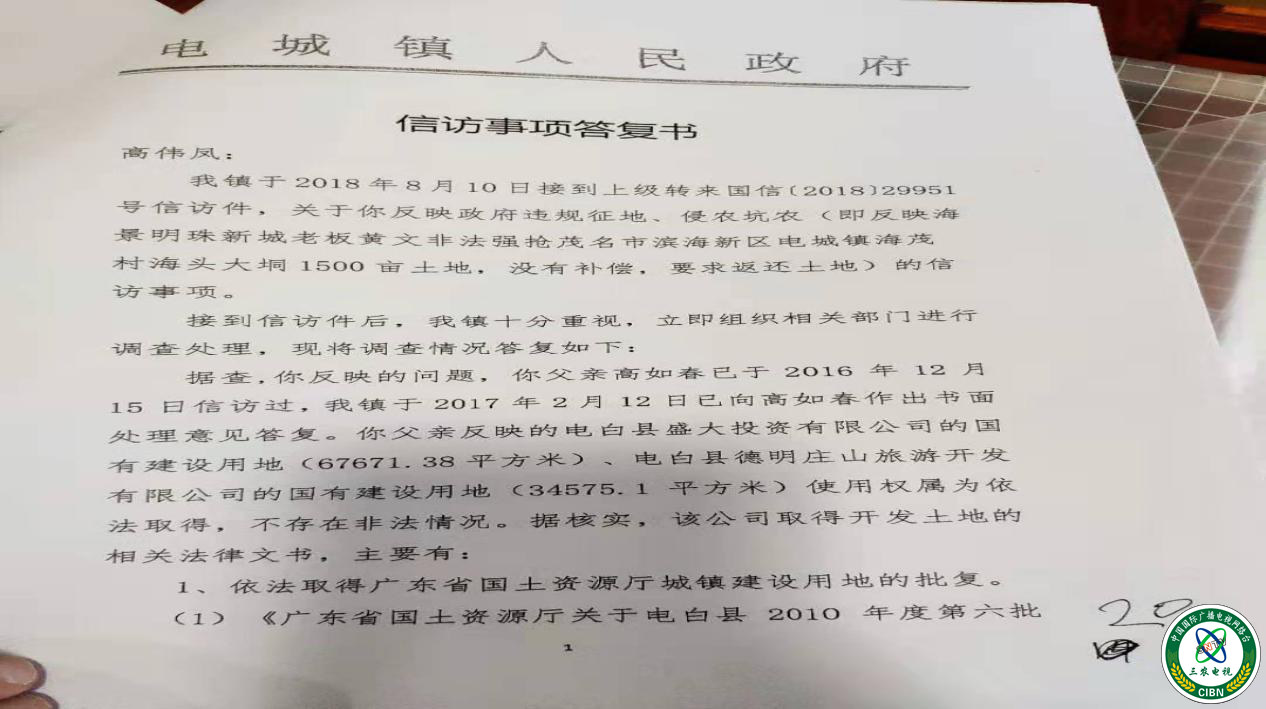 电城镇人民政府
信访事项答复书
高伟凤：
我镇于2018年8月10日接到上级转来国信〔2018〕29951
号信访件，关于你反映政府违规征地、侵农坑农（即反映海
景明珠新城老板黄文非法强抢茂名市滨海新区电城镇海茂
村海头大垌1500亩土地，没有补偿，要求返还土地）的信
访事项。
接到信访件后，我镇十分重视，立即组织相关部门进行
调查处理，现将调查情况答复如下：
据查,你反映的问题，你父亲高如春已于2016年12月
15日信访过，我镇于2017年2月12日已向高如春作出书面
处理意见答复。你父亲反映的电白县盛大投资有限公司的国
有建设用地（67671.38平方米）、电白县德明庄山旅游开发
有限公司的国有建设用地（34575.1平方米）使用权属为依
法取得，不存在非法情况。据核实，该公司取得开发土地的
相关法律文书，主要有：
1、依法取得广东省国土资源厅城镇建设用地的批复。
（1）《广东省国土资源厅关于电白县2010年度第六批
1
20
中国国际广播电视网络台
三农电视
CIBN